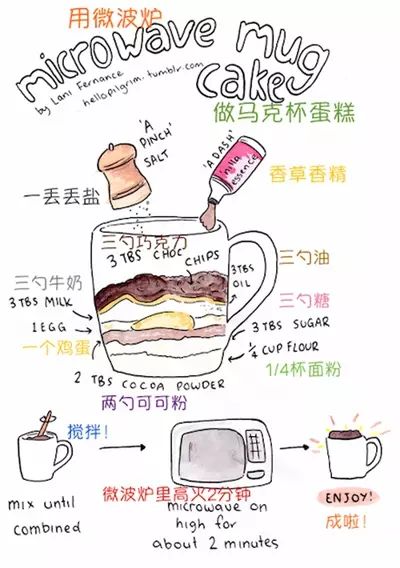 用微波炉
microwave mug
cake
by Lani Fernance
hellopilgrim.tumblr.com
做马克杯蛋糕
'A
PINCH'
SALT
'A DASH'
'nilla
essence
一丢丢盐
香草香精
三勺巧克力
3 TBS CHOC
CHIPS
三勺油
3 TBS
OIL
三勺牛奶
3 TBS MILK
三勺糖
3 TBS SUGAR
1 EGG
一个鸡蛋
1/4 CUP FLOUR
1/4杯面粉
2 TBS COCOA POWDER
两勺可可粉
搅拌!
mix until
combined
微波炉里高火2分钟
microwave on
high for
about 2 minutes
ENJOY!
成啦!